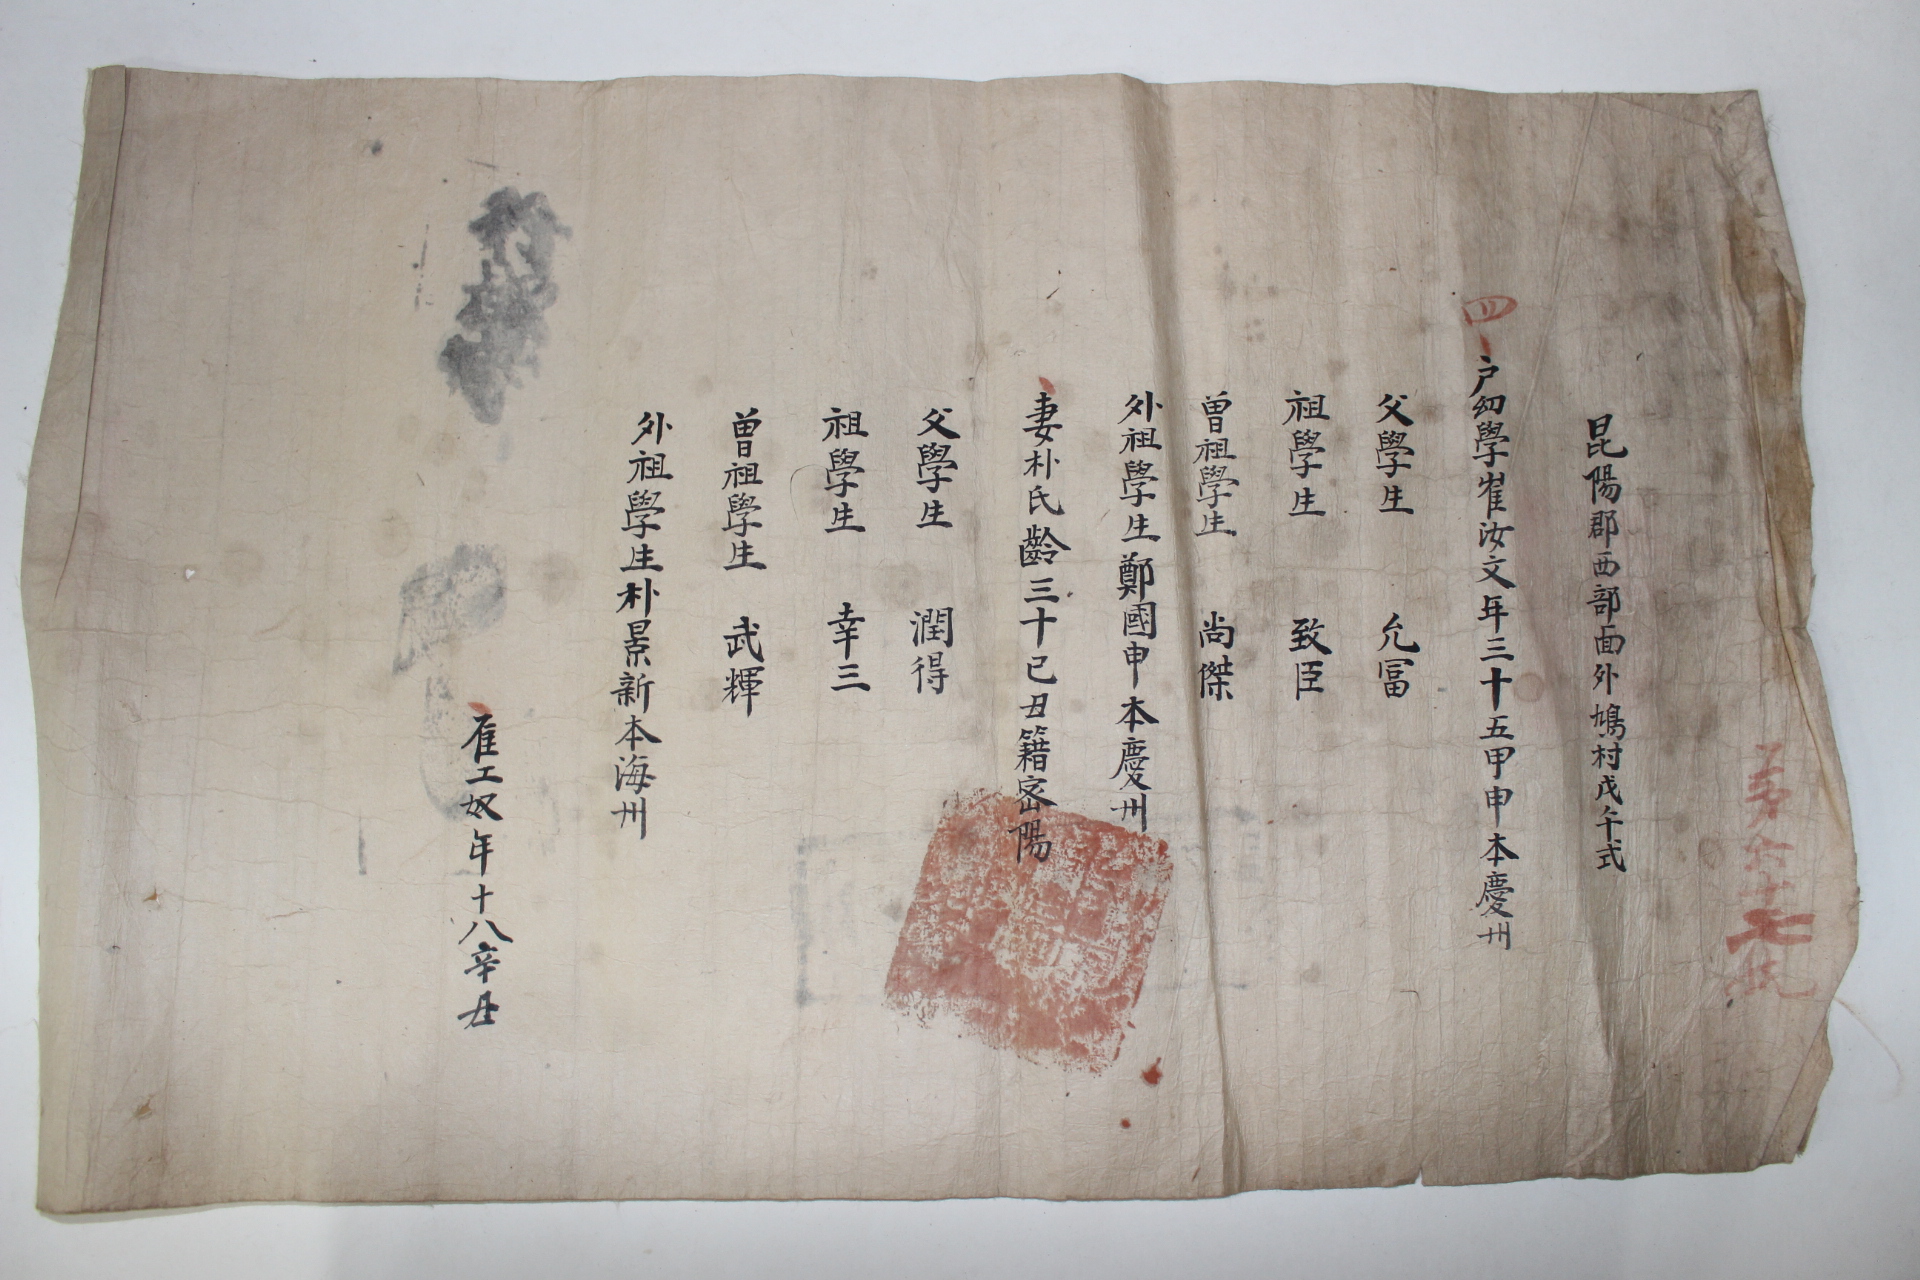 第六十七統
昆陽郡西部面外鳩村戊午式
四
戶幼學崔汝文年三十五甲申本慶州
父學生 允冨
祖學生 致臣
曽祖學生 尚傑
外祖學生鄭國申本慶州
妻朴氏齡三十己丑籍密陽
父學生 潤得
祖學生 幸三
曽祖學生 武輝
外祖學生朴景新本海州
雇工奴年十八辛丑